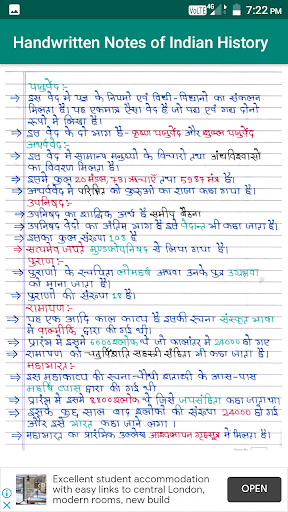 VoLTE 4G 7:22 PM
Handwritten Notes of Indian History
यजुर्वेद:-
⇒ इस वेद में यज्ञ के नियमों एवं विधी-विधानों का संकलन
मिलता है। यह एकमात्र ऐसा वेद है जो पद्य एवं गद्य दोनों
रूपों में लिखा है।
⇒ इस वेद के दो भाग है- कृष्ण यजुर्वेद और शुक्ल यजुर्वेद
अथर्ववेद:-
⇒ इस वेद में सामान्य मनुष्यों के विचारों तथा अंधविश्वासों
का विवरण मिलता है।
⇒ इसमें कुल 20 मंडल, 731 ऋचाएं तथा 5987 मंत्र है।
⇒ अथर्ववेद में परिक्षित को कुरुओं का राजा कहा गया है।
उपनिषद:-
⇒ उपनिषद का शाब्दिक अर्थ है समीप बैठना
⇒ उपनिषद वेदों का अंतिम भाग है इसे वेदान्त भी कहा जाता है।
⇒ इसका कुल संख्या 108 है
⇒ सत्यमेव जयते मुण्डकोपनिषद से लिया गया है।
पुराण:-
⇒ पुराणों के रचयिता लोमहर्ष अथवा उनके पुत्र उग्रश्रवा
को माना जाता है।
⇒ पुराणों की संख्या 18 है।
रामायण:-
⇒ यह एक आदि काल काव्य है इसकी रचना संस्कृत भाषा
में वाल्मीकि द्वारा की गई थी।
⇒ प्रारंभ में इसमें 6000 श्लोक थे जो कालांतर में 24000 हो गए
⇒ रामायण को चतुर्विंशति सहस्त्री संहिता भी कहा जाता है।
महाभारत:-
⇒ इस महाकाव्य की रचना चौथी शताब्दी के आस-पास
महर्षि व्यास द्वारा की गई थी
⇒ प्रारंभ में इसमें 8800 श्लोक थे जिसे जयसंहिता कहा जाता था।
⇒ इसके कुछ साल बाद श्लोकों की संख्या 24000 हो गई
और इसे भारत कहा जाने लगा।
⇒ महाभारत का प्रारंभिक उल्लेख आश्वलायन गृहसूत्र में मिलता है।
Excellent student accommodation
with easy links to central London,
modern rooms, new build
OPEN